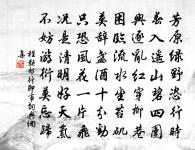 芳原綠野恣行時
春入遙山碧四圍
興逐亂紅穿柳巷
困臨流水坐苔磯
莫辭盞酒十分勸
只恐風花一片飛
況是清明好天氣
不妨游衍莫忘歸
程顥郊行即事詞典網
集